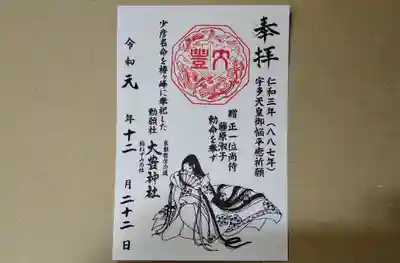 奉拝
仁和三年(八八七年)
宇多天皇御悩平癒祈願
贈 正一位尚侍
藤原淑子
勅命を奉ず
大豐
少彦名命を椿ヶ峰に奉祀した
勅願社 大豊神社
京都哲学の道
狛ねずみの社
令和元年十二月二十二日